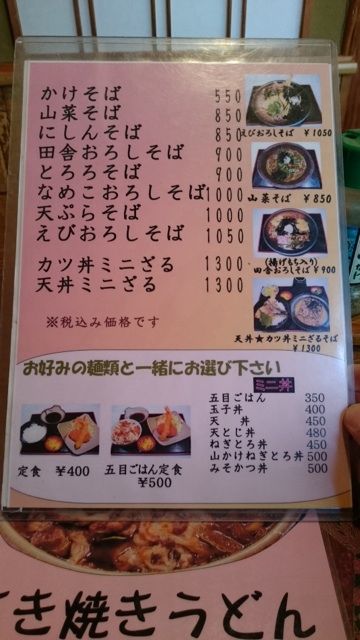 かけそば 550
山菜そば 850
にしんそば 850
田舎おろしそば 900
とろろそば 900
なめこおろしそば 1000
天ぷらそば 1000
えびおろしそば 1050
カツ丼ミニざる 1300
天丼ミニざる 1300
※税込み価格です
えびおろしそば ¥1050
山菜そば ¥850
(揚げもち入り)
田舎おろしそば ¥900
天丼★カツ丼ミニざるそば
¥1300
お好みの麺類と一緒にお選び下さい
ミニ丼
五目ごはん 350
玉子丼 400
天丼 450
天とじ丼 480
ねぎとろ丼 450
山かけねぎとろ丼 500
みそかつ丼 500
定食 ¥400
五目ごはん定食
¥500
き焼きうどん